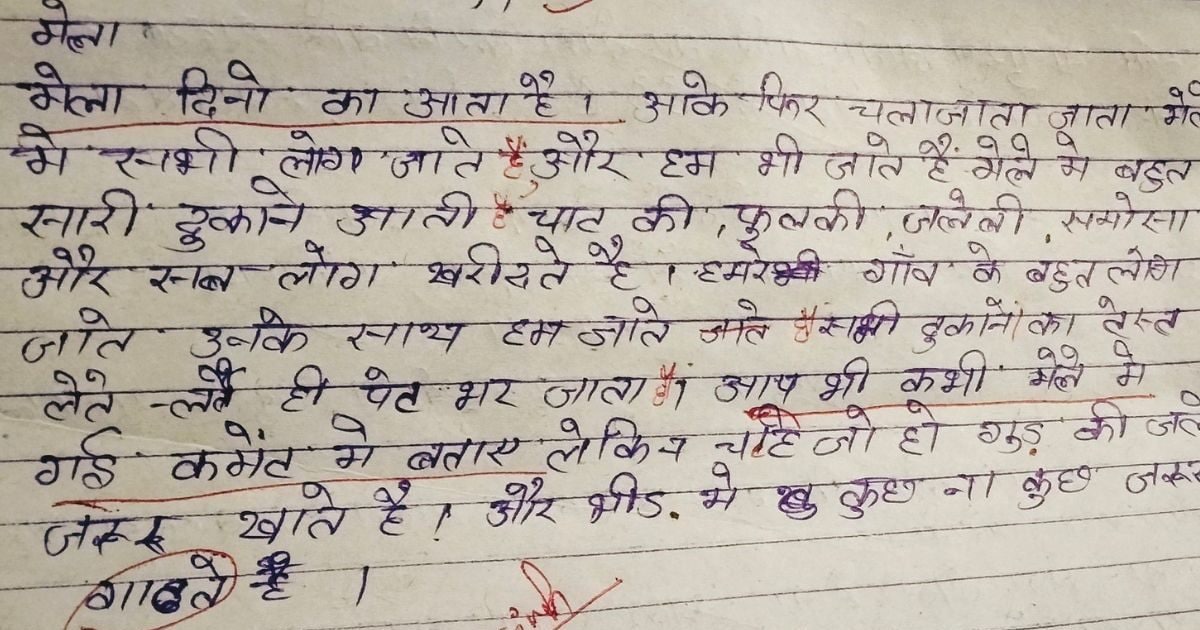 मेला
मेला दिनो का आता है। आके फिर चलाजाता जाता मेले
मे सभी लोग जाते हैं, और हम भी जाते हैं मेले मे बहुत
सारी दुकाने आती है चाट की, फुलकी, जलेली, समोसा
और सब लोग खरीदते है। हमरे गाँव के बहुत लोग
जाते उनके साथ हम जाते जाते है सभी दुकानों का तेस्त
लेते-लेते ही पेट भर जाता है। आप भी कभी मेले मे
गई कमेंत मे बताए लेकिन चाहे जो हो गुड़ की जले
जरूर खाते है। और भीड. मे कुछ ना कुछ जरूर
है।